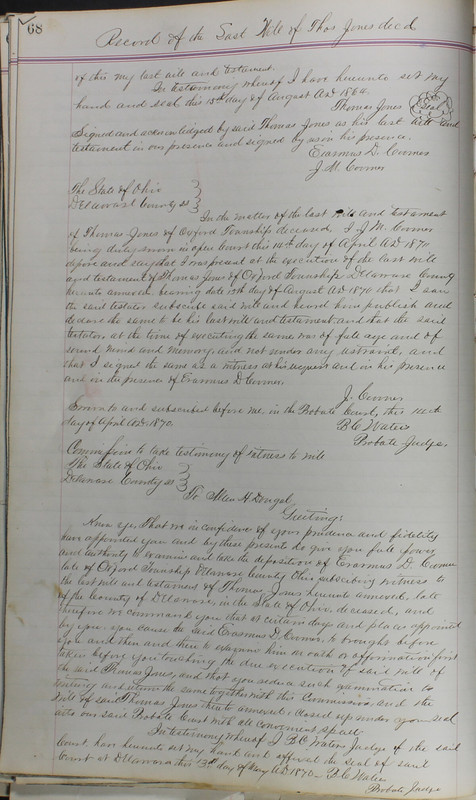 68
Record of the Last Will of Thos Jones decd
of this my last will and testament.
In testimony whereof I have hereunto set my
hand and seal this 15th day of August AD 1864.
Thomas Jones Seal
Signed and acknowledged by said Thomas Jones as his last will and
testament in our presence and signed by us in his presence.
Erasmus D. Coomer
J. M. Coomer
The State of Ohio
Delaware County ss
In the matter of the last Will and Testament
of Thomas Jones of Oxford Township deceased, I J. M. Coomer
being duly sworn in open Court this 14th day of April AD 1870
depose and say that I was present at the execution of the last will
and testament of Thomas Jones of Oxford Township Delaware County
hereunto annexed bearing date 15th day of August AD 1870 that I saw
the said testator subscribe said will and heard him publish and
declare the same to be his last will and testament and that the said
testator at the time of executing the same was of full age and of
sound mind and memory and not under any restraint, and
that I signed the same as a witness at his request and in his presence
and in the presence of Erasmus D Coomer.
J. Coomer
Sworn to and subscribed before me, in the Probate Court, this 14th
day of April AD 1870.
B C Waters
Probate Judge.
Commission to take testimony of witness to will
The State of Ohio
Delaware County ss
To Allen H. Dengal
Greeting:
Know ye, That we in confidence of your prudence and fidelity
have appointed you and by these presents do give you full power
and authority to examine and take the deposition of Erasmus D. Coomer
late of Oxford Township Delaware County Ohio subscribing witness to
the last will and testament of Thomas Jones hereunto annexed, late
of the County of Delaware, in the State of Ohio, deceased, and
therefore we command you that at certain day and place appointed
by you, you cause the said Erasmus D. Coomer to be brought before
you and then and there to examine him on oath or affirmation first
taken before you touching the due execution of said will of
the said Thomas Jones, and that you reduce such examination to
writing and return the same together with this Commission, and the
Will of said Thomas Jones thereto annexed, closed up under your seal
into our said Probate Court with all convenient speed.
In testimony whereof I B.C. Waters Judge of the said
Court, have hereunto set my hand and affixed the seal of said
Court at Delaware this 13th day of May AD 1870. B. C. Waters
Probate Judge